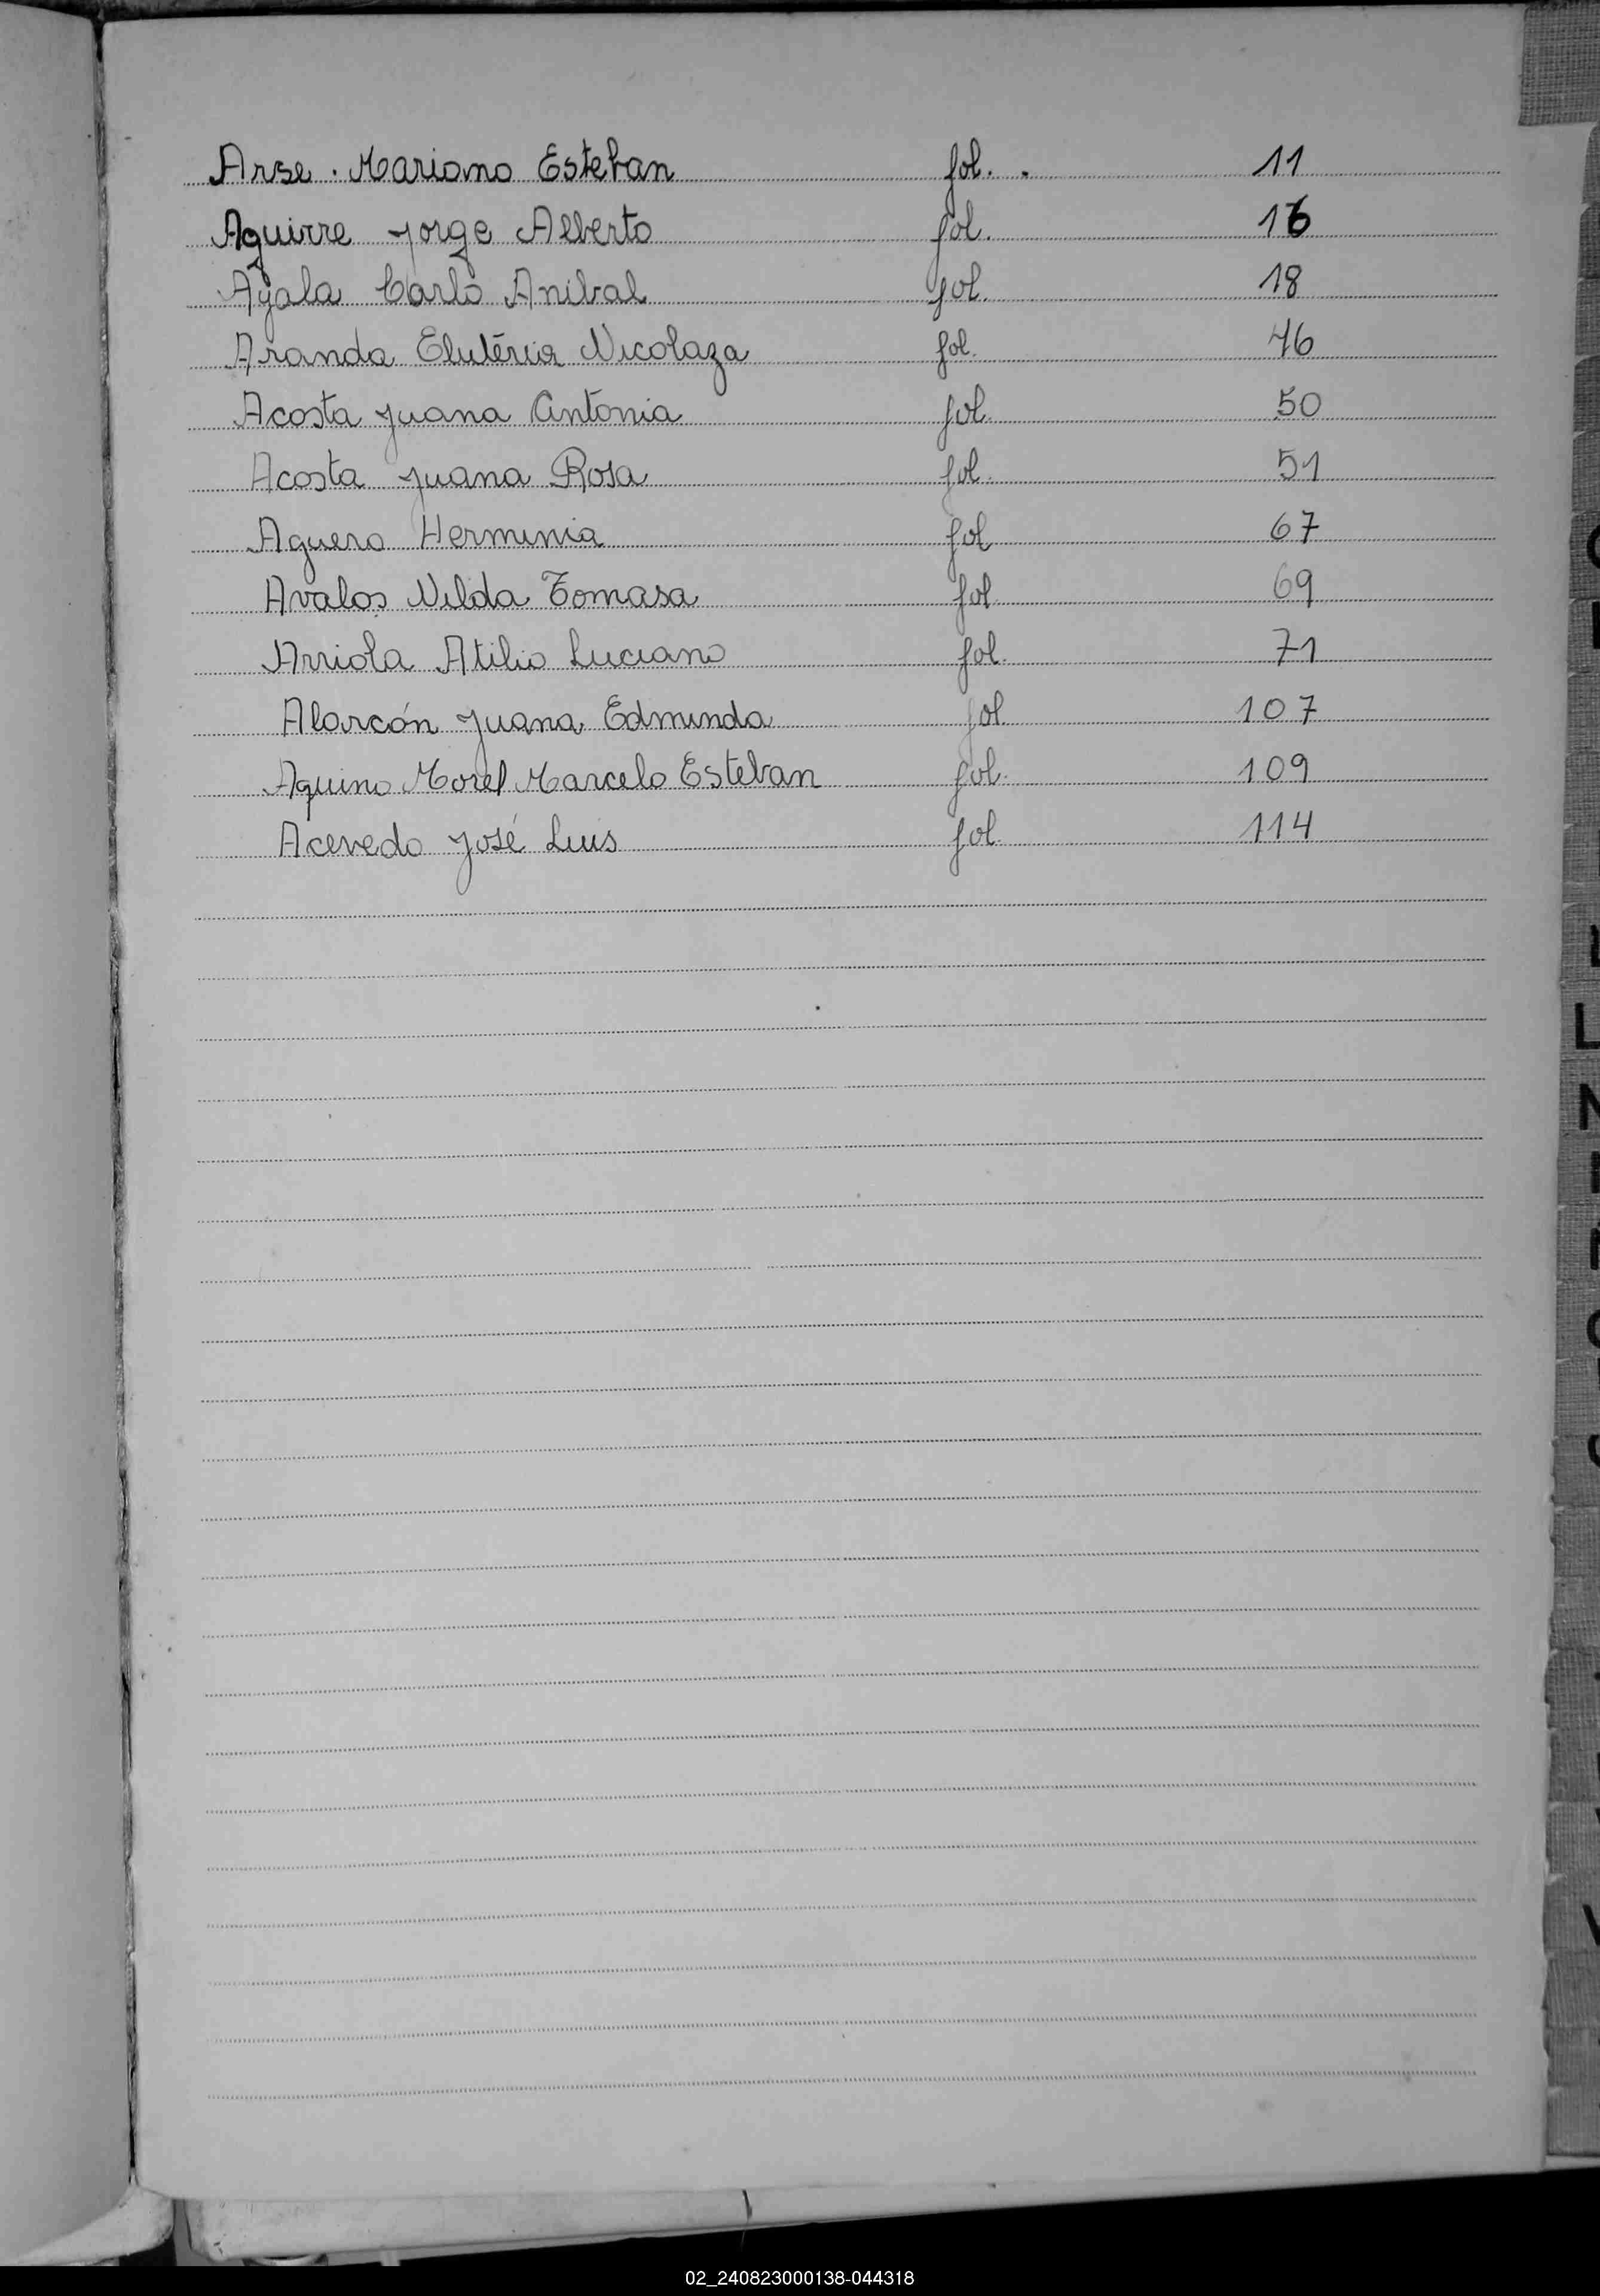 Arse. Mariano Esteban fol. . 11
Aguirre Jorge Alberto fol. 16
Ayala Carlo Anibal fol. 18
Aranda Elutéria Nicolaza fol. 46
Acosta Juana Antonia fol. 50
Acosta Juana Rosa fol. 51
Aguero Herminia fol 67
Avalos Nilda Tomasa fol 69
Arriola Atilio Luciano fol. 71
Alarcón Juana Edmunda fol. 107
Aquino Morel Marcelo Esteban fol. 109
Acevedo José Luis fol. 114
L
N
V
02_240823000138-044318